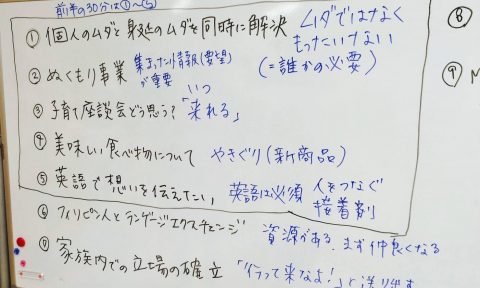 前半の30分は①〜⑤
① 個人のムダと身近のムダを同時に解決 ムダではなく
もったいない
(=誰かの必要)
② ぬくもり事業 集まった情報(要望)
が重要
いつ
③ 子育て座談会どう思う? 「来れる」
④ 美味しい食べ物について やきぐり(新商品)
⑤ 英語で想いを伝えたい 英語は必須 人をつなぐ
接着剤
⑥ フィリピン人とランゲージエクスチェンジ 資源がある まず仲良くなる
⑦ 家族内での立場の確立 「行って来なよ!」と送り出す
⑧
⑨ M